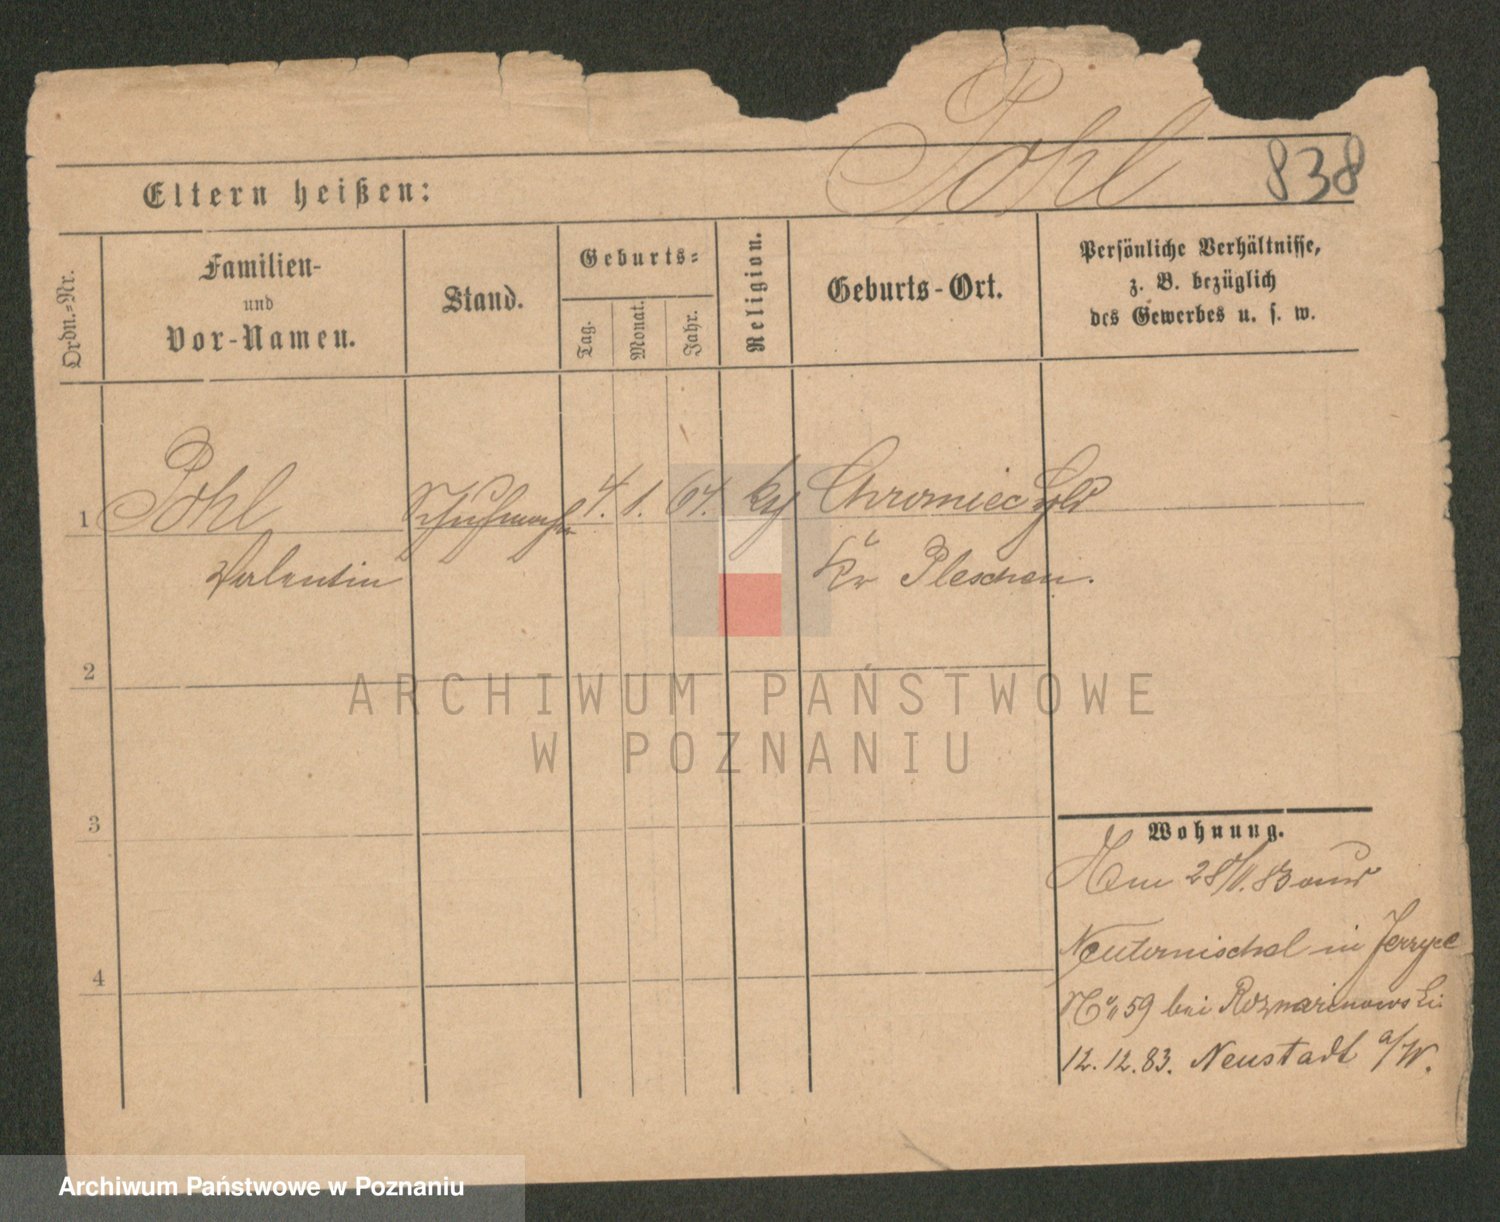 Pohl
838
Eltern heißen:
Ordn.-Nr.
Familien-
und
Vor-Namen.
Stand.
Geburts-
Tag.
Monat.
Jahr.
Religion.
Geburts-Ort.
Persönliche Verhältnisse,
z. B. bezüglich
des Gewerbes u. s. w.
1 Pohl Schuhmacher 4. 1. 64. Chromiec
Valentin Kr Pleschen.
2
3
4
Wohnung.
Am 28/11.83 aus
in
No 59 bei
12.12.83. Neustadt a/W.
ARCHIWUM PAŃSTWOWE
W POZNANIU
Archiwum Państwowe w Poznaniu